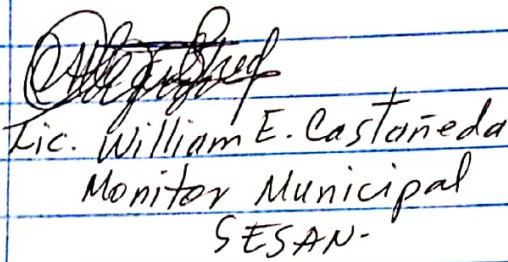 Lic. William E. Castañeda
Monitor Municipal
SESAN-